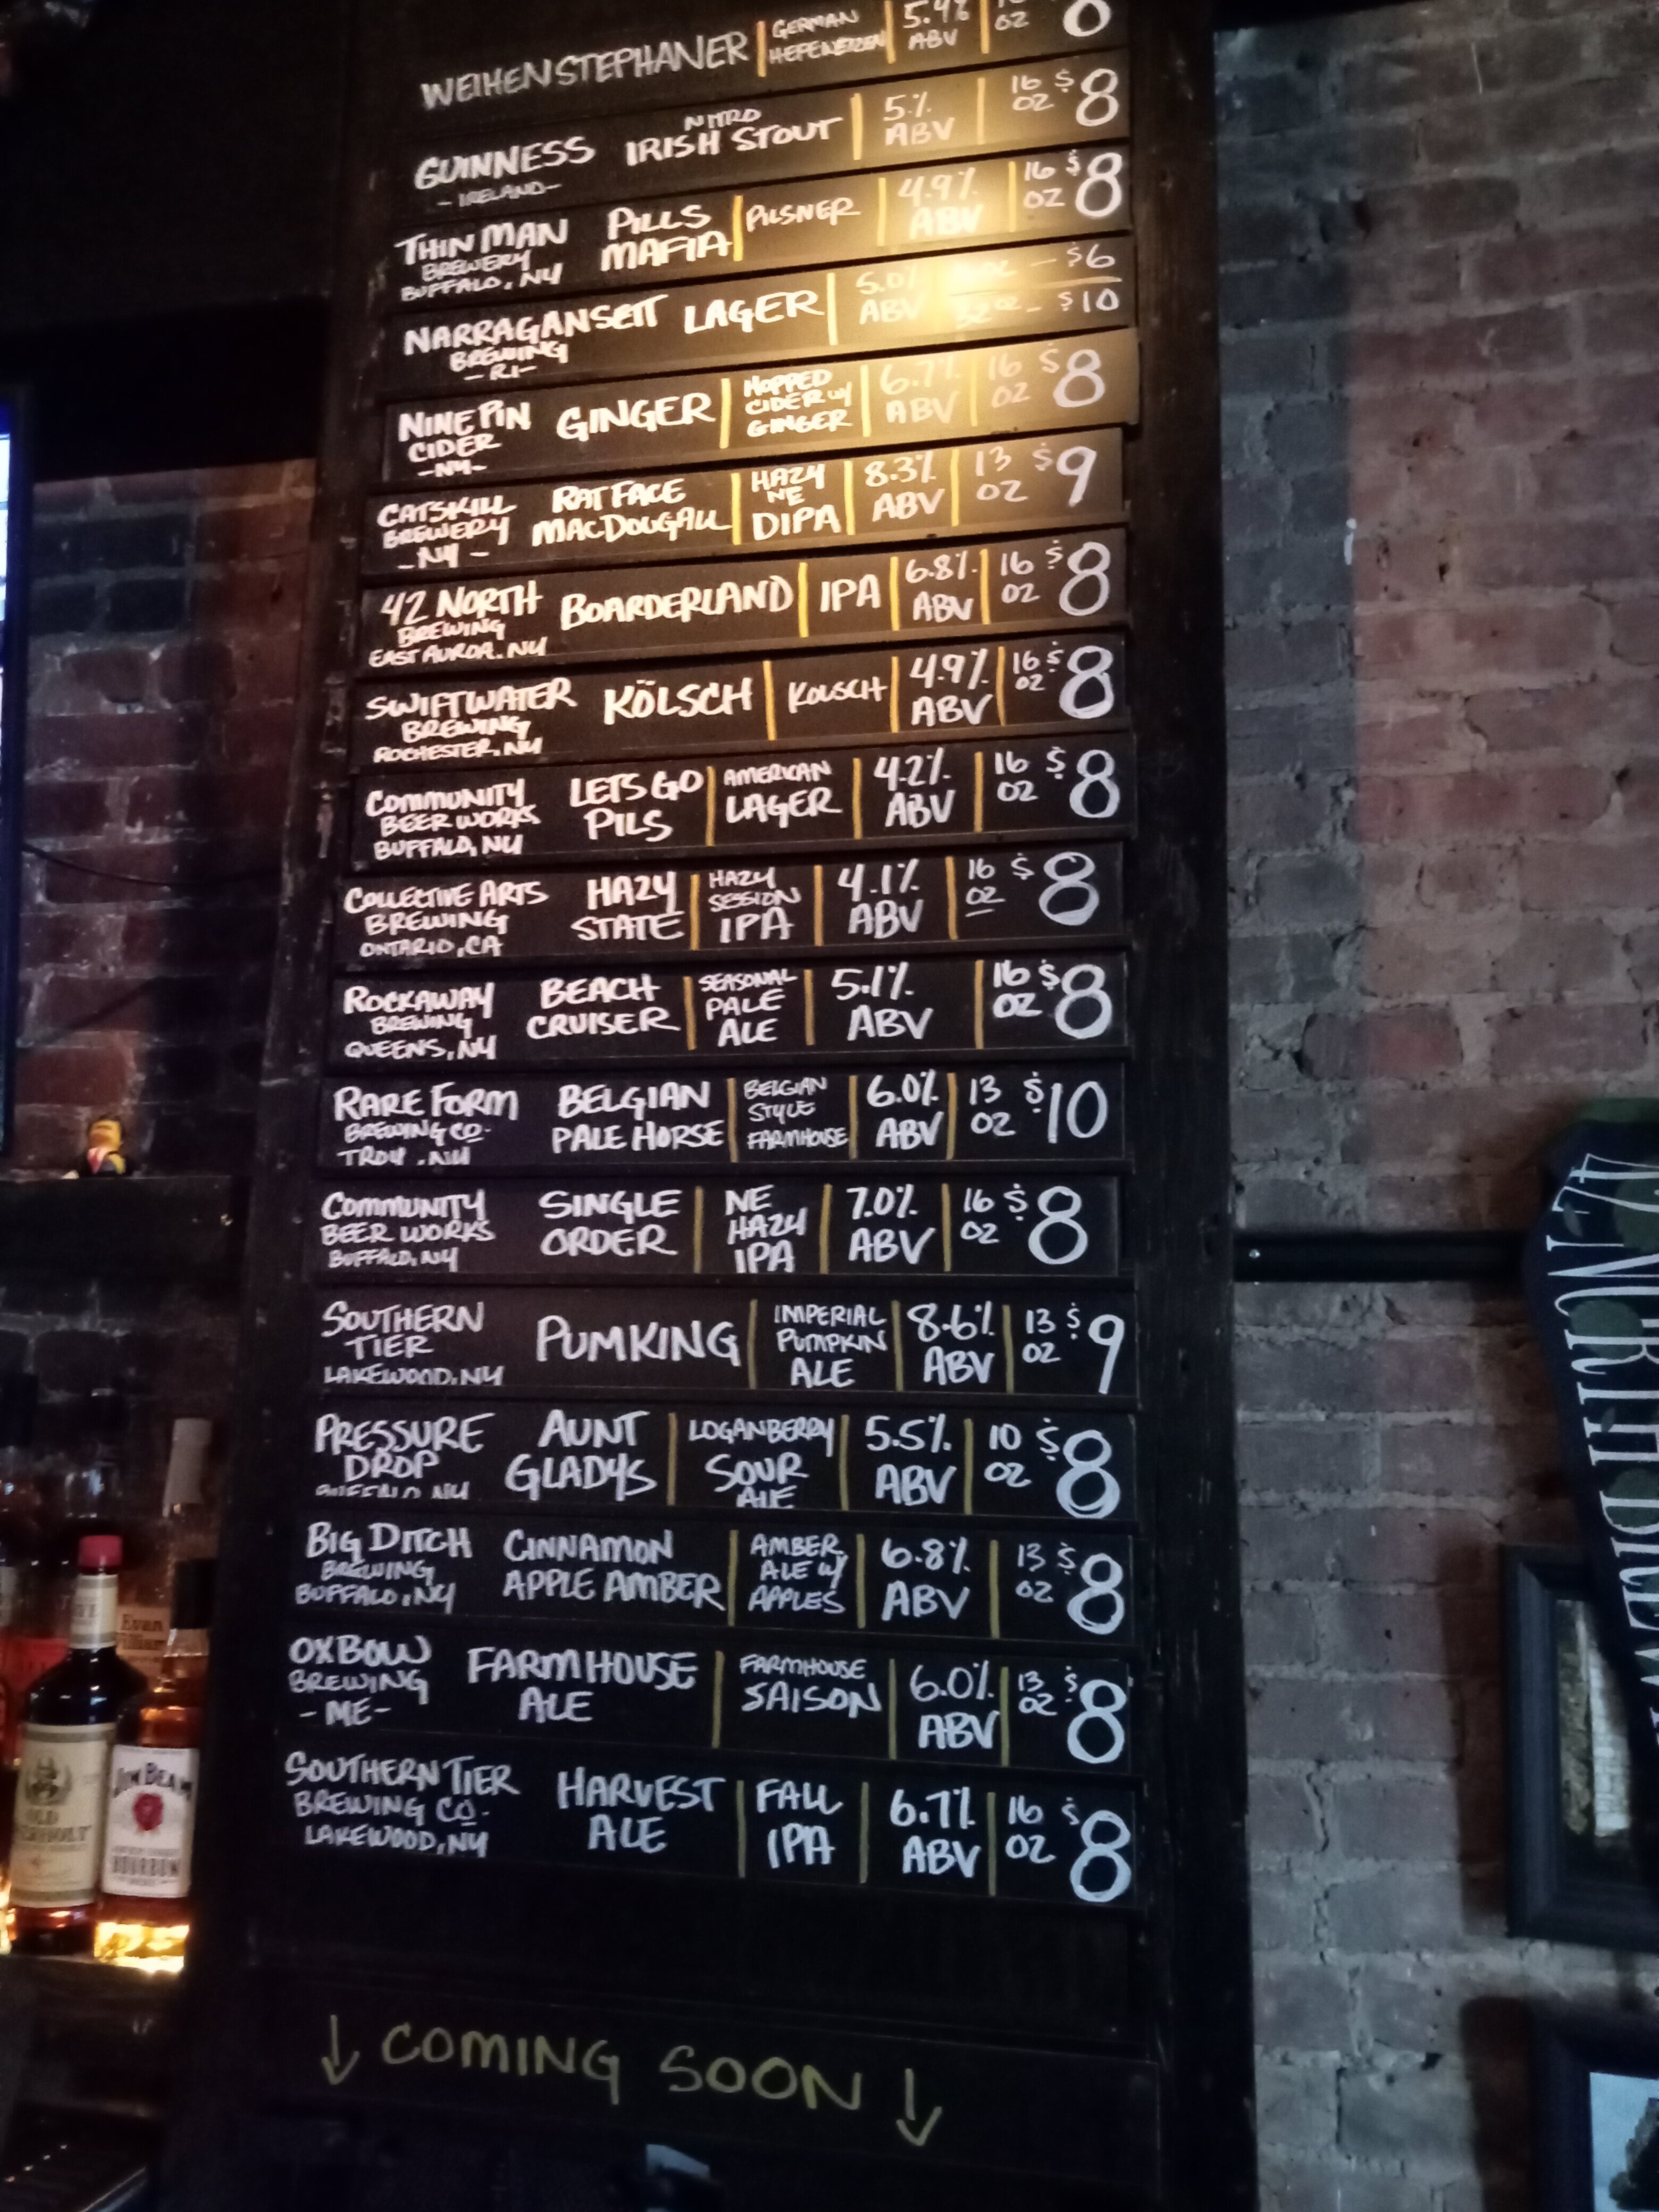 WEIHENSTEPHANER GERMAN HEFEWEIZEN 5.4% ABV OZ 8
GUINNESS NITRO IRISH STOUT 5% ABV 16 OZ $8
-IRELAND-
THIN MAN PILLS MAFIA PILSNER 4.9% ABV 16 OZ $8
BREWERY
BUFFALO, NY
NARRAGANSETT LAGER 5.0% ABV OZ - $6
BREWING 32 OZ - $10
-RI-
NINE PIN GINGER HOPPED CIDER W/ GINGER 6.7% ABV 16 OZ $8
CIDER
-NY-
CATSKILL RATFACE MACDOUGALL HAZY NE DIPA 8.3% ABV 13 OZ $9
BREWERY
-NY-
42 NORTH BOARDERLAND IPA 6.8% ABV 16 OZ $8
BREWING
EAST AUROA, NY
SWIFTWATER KÖLSCH KOLSCH 4.9% ABV 16 OZ $8
BREWING
ROCHESTER, NY
COMMUNITY LETS GO PILS AMERICAN LAGER 4.2% ABV 16 OZ $8
BEER WORKS
BUFFALO, NY
COLLECTIVE ARTS HAZY STATE HAZY SESSION IPA 4.1% ABV 16 OZ $8
BREWING
ONTARIO, CA
ROCKAWAY BEACH CRUISER SEASONAL PALE ALE 5.1% ABV 16 OZ $8
BREWING
QUEENS, NY
RARE FORM BELGIAN PALE HORSE BELGIAN STYLE FARMHOUSE 6.0% ABV 13 OZ $10
BREWING CO.
TROY, NY
COMMUNITY SINGLE ORDER NE HAZY IPA 7.0% ABV 16 OZ $8
BEER WORKS
BUFFALO, NY
SOUTHERN PUMKING IMPERIAL PUMPKIN ALE 8.6% ABV 13 OZ $9
TIER
LAKEWOOD, NY
PRESSURE AUNT GLADYS LOGANBERRY SOUR ALE 5.5% ABV 10 OZ $8
DROP
BUFFALO NY
BIG DITCH CINNAMON APPLE AMBER AMBER ALE W/ APPLES 6.8% ABV 13 OZ $8
BREWING
BUFFALO, NY
OXBOW FARMHOUSE ALE FARMHOUSE SAISON 6.0% ABV 13 OZ $8
BREWING
-ME-
SOUTHERN TIER HARVEST ALE FALL IPA 6.7% ABV 16 OZ $8
BREWING CO.
LAKEWOOD, NY
↓ COMING SOON ↓
42 NORTH
Evan Williams
OLD
JIM BEAM
BOURBON